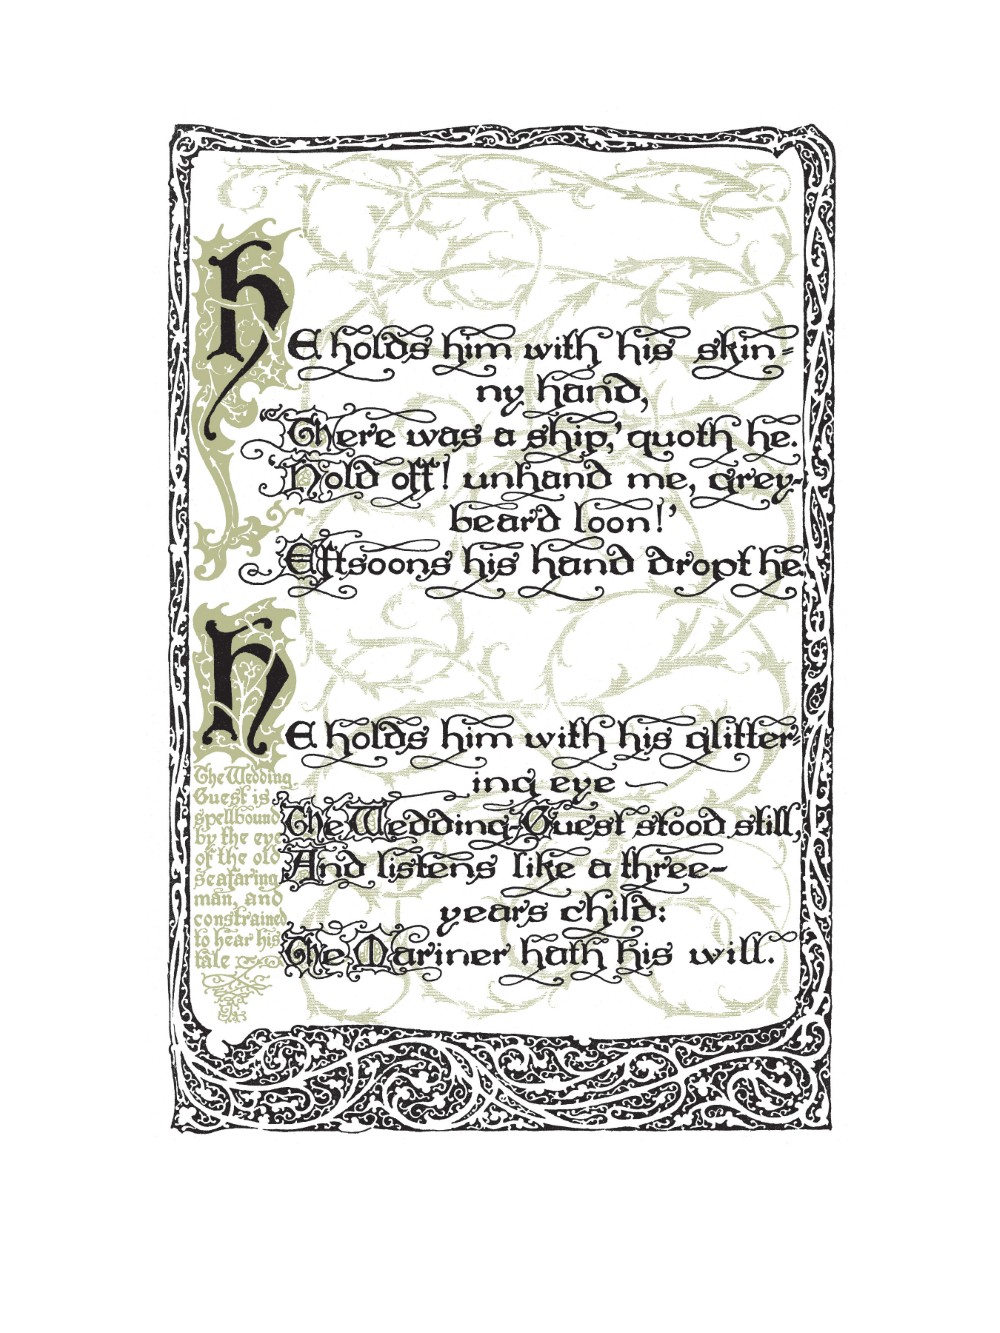 HE holds him with his skin-
ny hand,
“There was a ship,’ quoth he.
‘Hold off! unhand me, grey-
beard loon!’
Eftsoons his hand dropt he.
HE holds him with his glitter-
ing eye —
The Wedding-Guest stood still,
And listens like a three-
years child:
The Mariner hath his will.
The Wedding
Guest is
spellbound
by the eye
of the old
seafaring
man, and
constrained
to hear his
tale